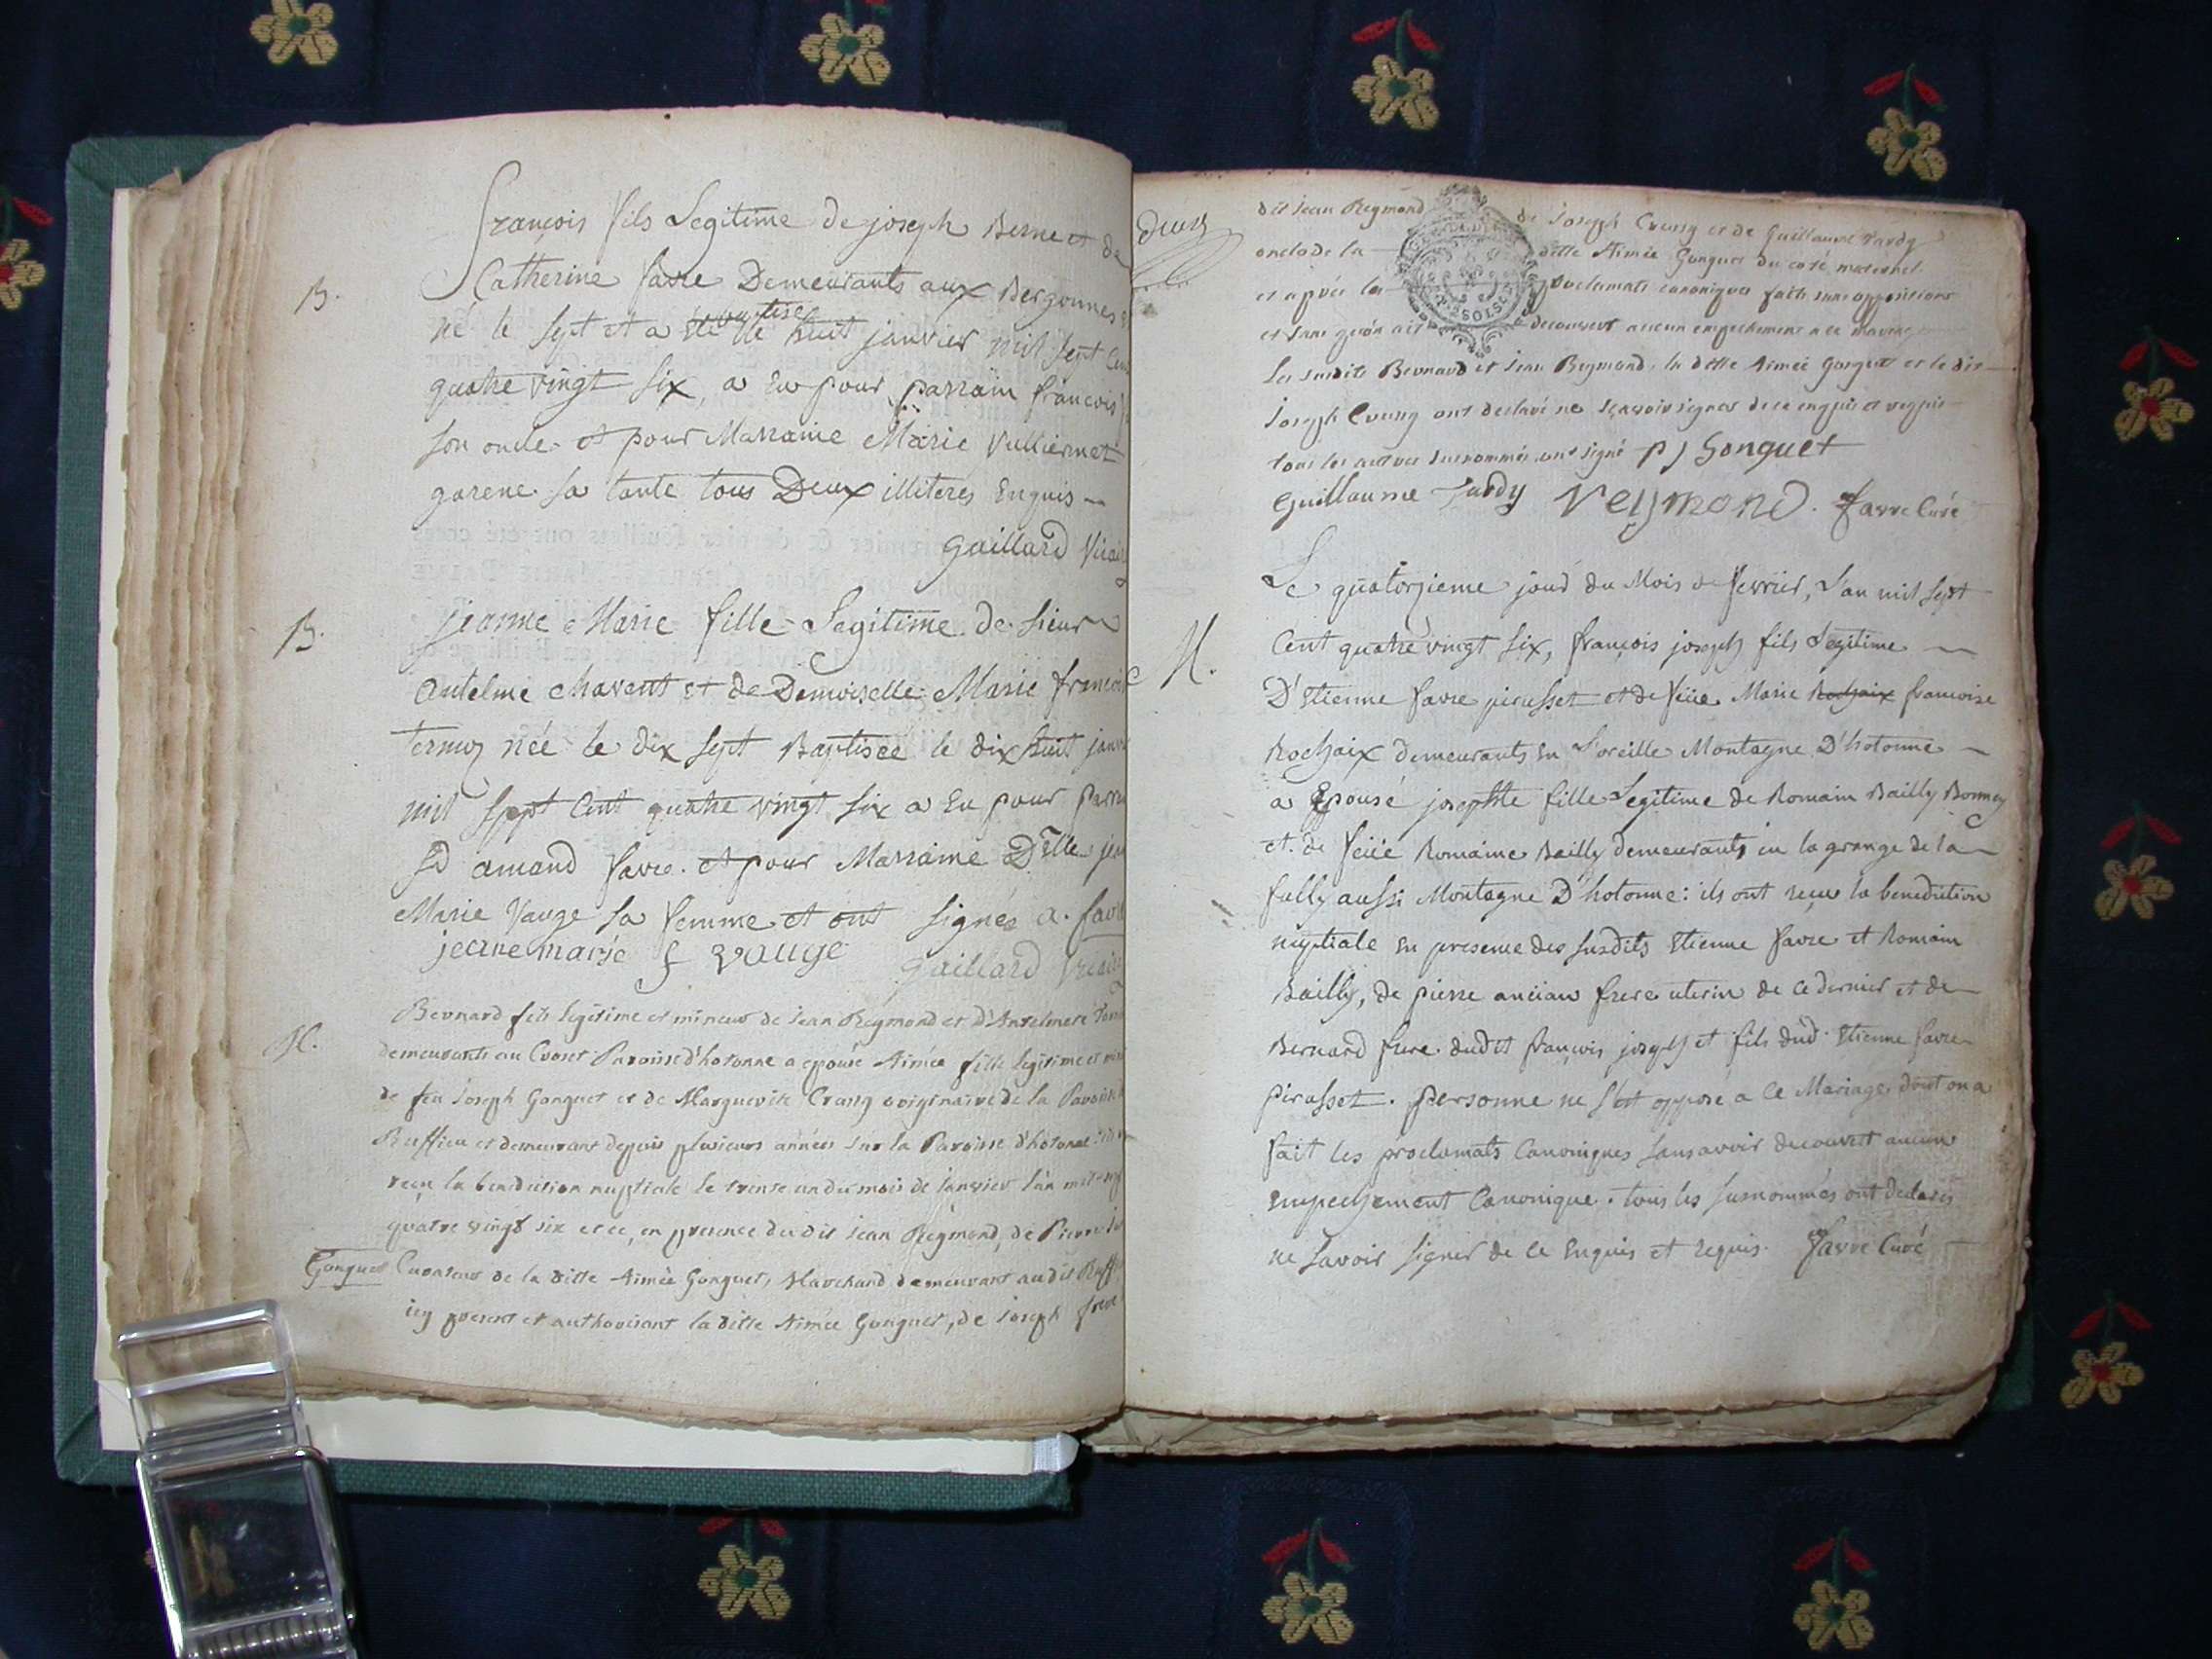 françois fils Legitime de joseph Berne et de
B.
Catherine favre Demeurants aux Bergonnes
né le sept et a été baptisé le huit janvier mil sept cent
quatre vingt six, a Eu pour parrain françois
son oncle et pour Marraine Marie Vulliermet
garene sa tante tous Deux illiteres Enquis
Gaillard Vicaire
B.
jeanne Marie fille Legitime de sieur
antelme chavent et de Demoiselle Marie françoise
termoz née le dix sept Baptisée le dix huit janvier
mil sept Cent quatre vingt six a Eu pour parrain
Sd amand favre et pour Marraine Delle
Marie Vauge sa femme et ont signés a. favre
jeane marie f vauge Gaillard Vicaire
M.
Bernard fils legitime et mineur de jean Reymond et d'Antelmete
demeurants au Crozet Paroisse d'hotonne a epousé Aimée fille legitime et
de feu Joseph Gonguet et de Marguerite Crussy originaire de la Paroisse
Ruffieu et demeurant depuis plusieurs années sur la Paroisse d'hotonne
reçu la benediction nuptiale le trente un du mois de janvier l'an mil sept
quatre vingt six et ce, en presence du dit jean Reymond, de Pierre
Gonguet Curateur de la ditte Aimée Gonguet, Marchand demeurant au dit
icy present et authorisant la ditte Aimée Gonguet, de Joseph frere
deux
dit jean Reymond de Joseph Crussy et de Guillaume Tardy
oncle de la ditte Aimée Gonguet du coté maternel
et après les proclamats canoniques faits sans oppositions
SOLS
et sans qu'on ait decouvert aucun empechement a ce mariage
Les susdits Bernard et jean Reymond, la ditte Aimée Gonguet et le dit
Joseph Crussy ont declaré ne sçavoir signer de ce enquis et requis
tous les autres surnommés ont signé pj Gonguet
Guillaume Tardy Reymond. favre Curé
Le quatorzieme jour du Mois de fevrier, L'an mil sept
M.
Cent quatre vingt six, françois joseph fils Legitime
D'Etienne favre pirasset et de feüe Marie Rochaix françoise
Rochaix demeurants en Loreille Montagne D'hotonne
a Epousé josephte fille Legitime de Romain Bailly
et de feüe Romaine Bailly demeurants en la grange de la
fully aussi Montagne D'hotonne: ils ont reçu la benediction
nuptiale en presence des susdits Etienne favre et Romain
Bailly, de pierre ancian frere uterin de ce dernier et de
Bernard frere dudit françois joseph et fils dud. Etienne favre
pirasset. personne ne s'est opposé a ce Mariage dont on a
fait les proclamats Canoniques sans avoir decouvert aucun
empechement Canonique. tous les surnommés ont declarés
ne savoir signer de ce Enquis et requis. favre Curé